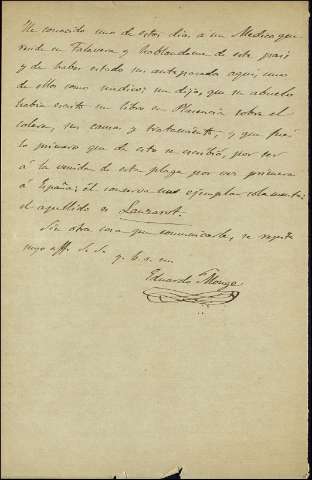 He conocido uno de estos dias a un Medico que
reside en Talavera y hablandome de este pais
y de haber estado sus antepasados aqui, uno
de ellos como medico; me dijo, que su abuelo
habia escrito un libro en Plasencia sobre el
colera, sus causas y tratamiento, y que fué
lo primero que de esto se escribió, por ser
á la venida de esta plaga por vez primera
á España; él conserva un ejemplar solamente;
el apellido es Lauzarot.
Sin otra cosa que comunicarle, se repite
suyo aff. S. S.
q. b. s. m.
Eduardo Monge